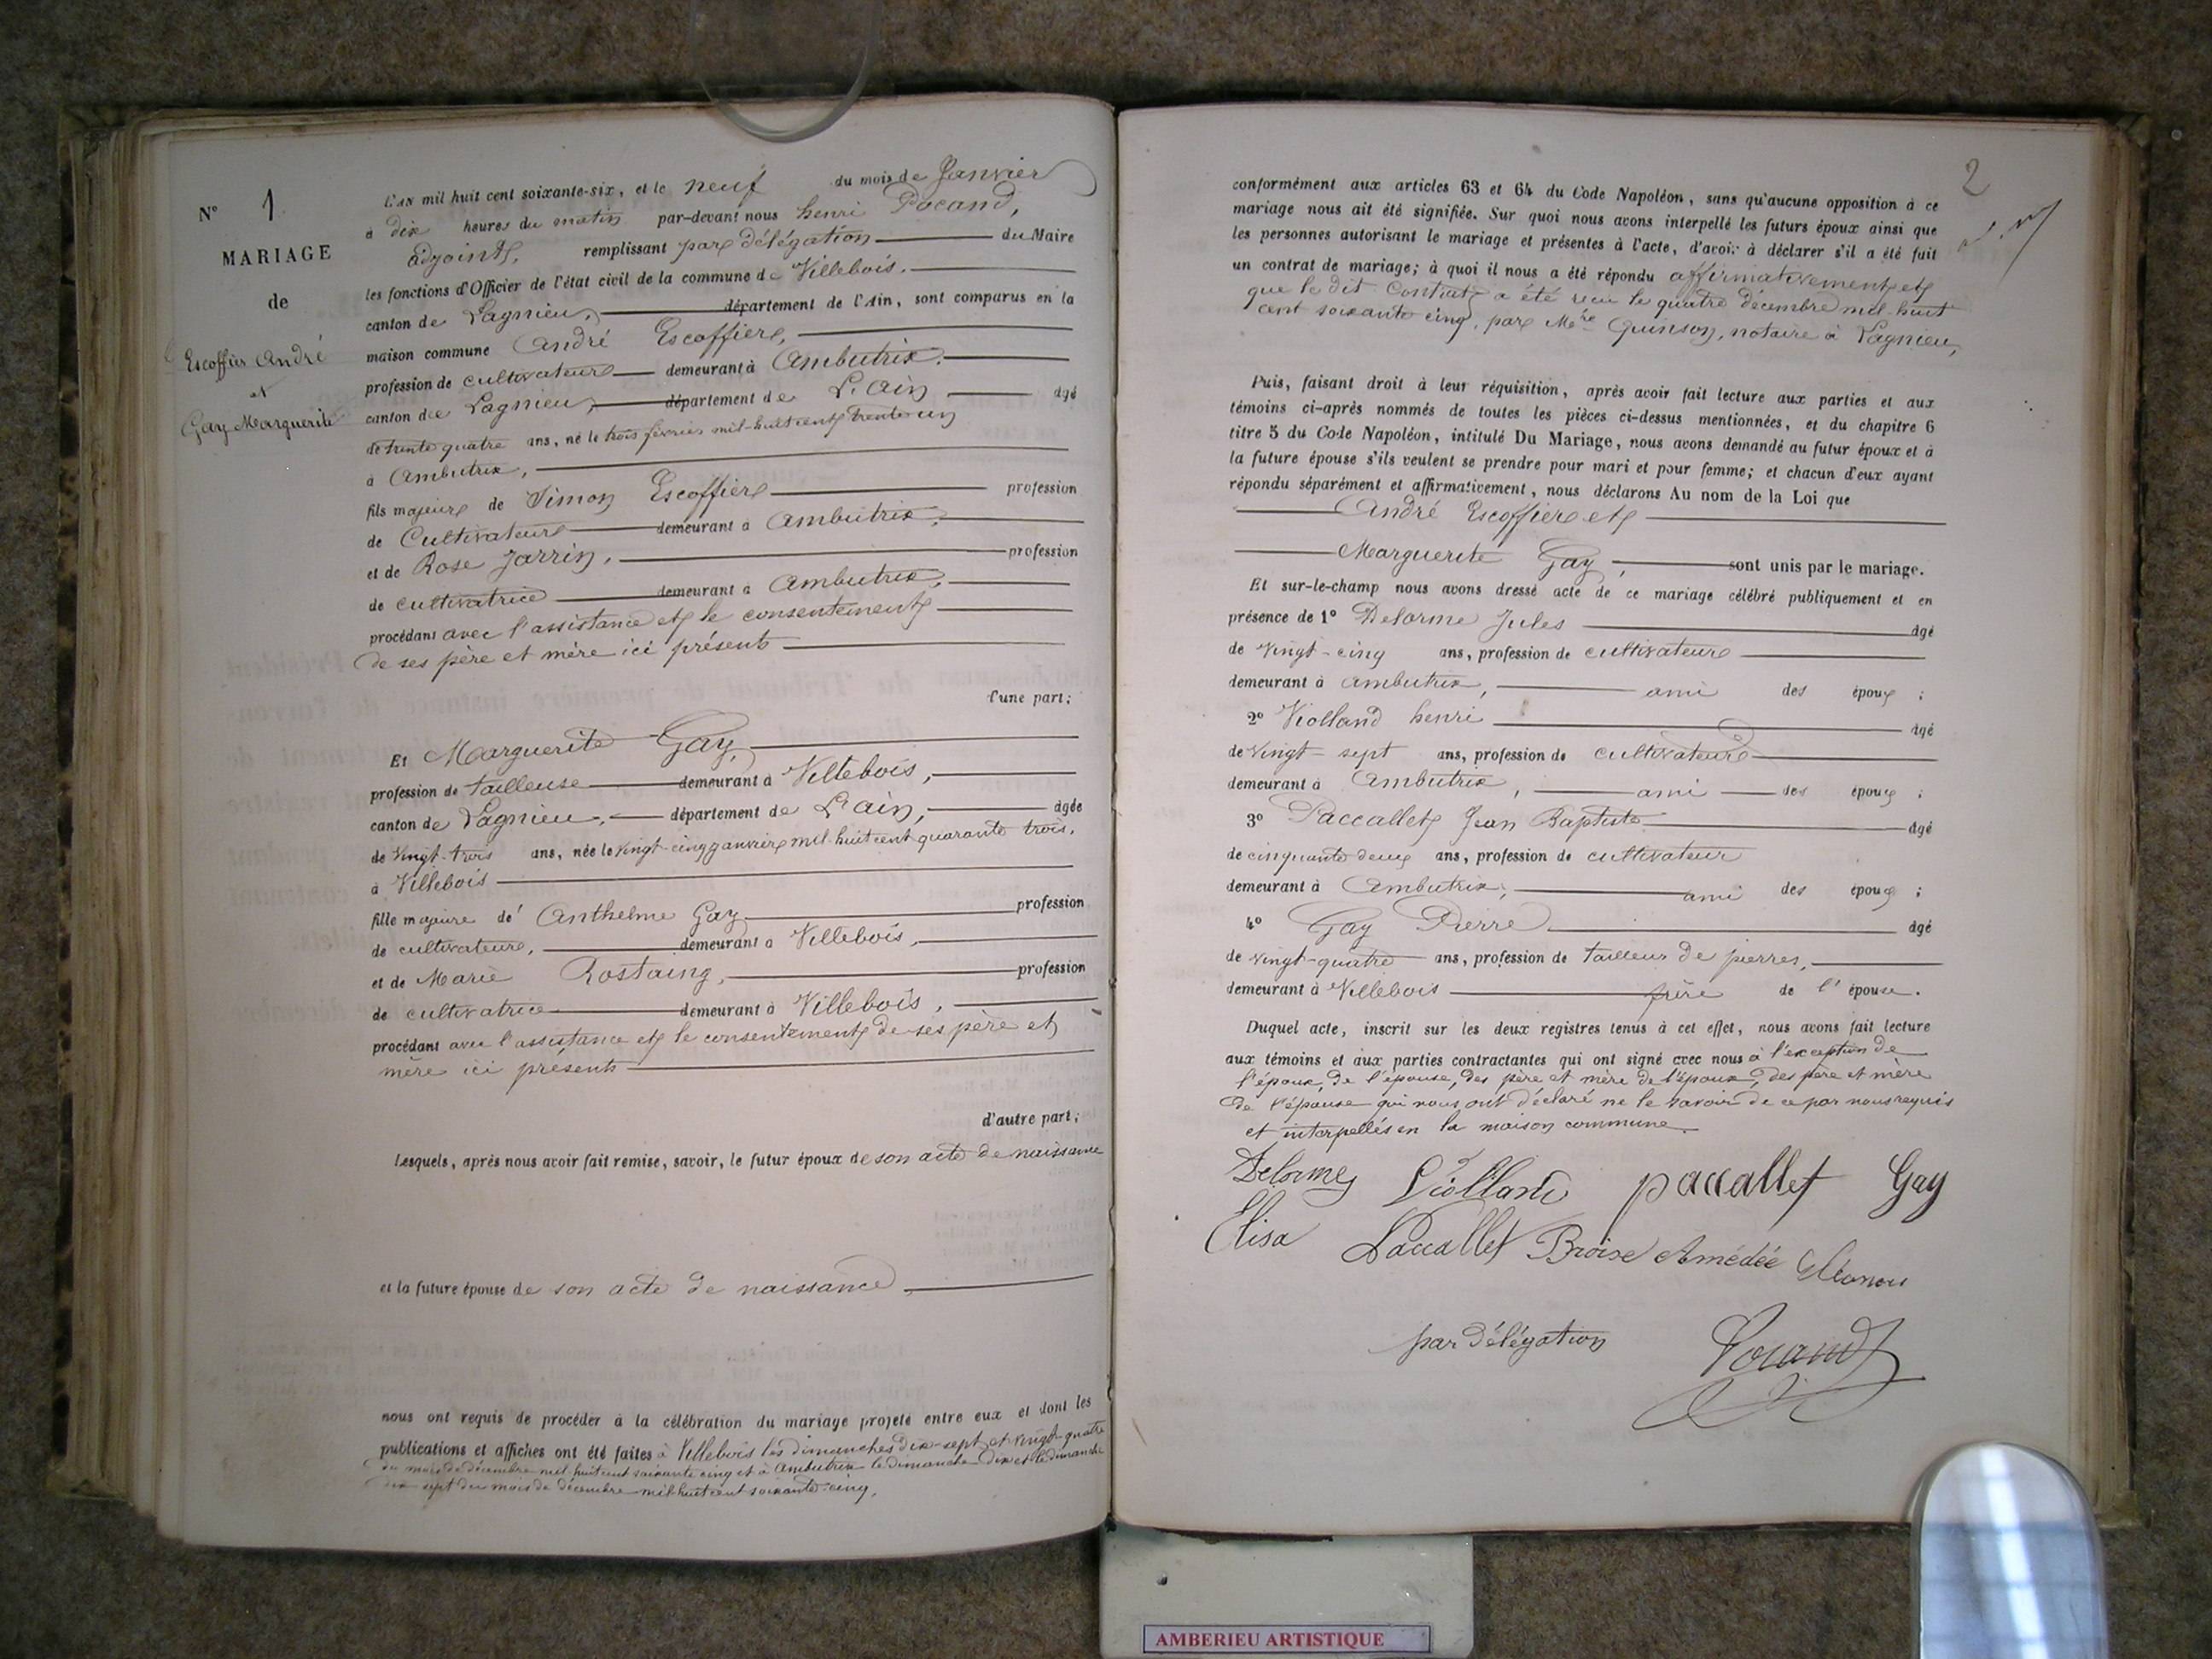 N° 1
MARIAGE
de
Escoffier André
et
Gay Marguerite
L'an mil huit cent soixante-six, et le neuf du mois de Janvier
à dix heures du matin par-devant nous henri Pocand,
adjoint, remplissant par délégation du Maire
les fonctions d'Officier de l'état civil de la commune de Villebois.
canton de Lagnieu, département de l'Ain, sont comparus en la
maison commune André Escoffier,
profession de cultivateur demeurant à Ambutrix.
canton de Lagnieu, département de L'Ain âgé
de trente quatre ans, né le trois février mil-huit cent trente un
à Ambutrix,
fils majeur de Simon Escoffier profession
de Cultivateur demeurant à Ambutrix,
et de Rose Jarrin, profession
de cultivatrice demeurant à Ambutrix,
procédant avec l'assistance et le consentement
de ses père et mère ici présents
d'une part;
Et Marguerite Gay,
profession de tailleuse demeurant à Villebois,
canton de Lagnieu, département de L'ain, âgée
de Vingt-trois ans, née le vingt-cinq janvier mil-huit cent quarante trois,
à Villebois
fille majeure de Anthelme Gay profession
de cultivateur, demeurant à Villebois,
et de Marie Rostaing, profession
de cultivatrice demeurant à Villebois,
procédant avec l'assistance et le consentement de ses père et
mère ici présents
d'autre part;
Lesquels, après nous avoir fait remise, savoir, le futur époux de son acte de naissance
et la future épouse de son acte de naissance,
nous ont requis de procéder à la célébration du mariage projeté entre eux et dont les
publications et affiches ont été faites à Villebois les dimanches dix-sept et vingt-quatre
du mois de décembre mil huit cent soixante cinq et à Ambutrix le dimanche dix et le dimanche
dix sept du mois de décembre mil-huit cent soixante-cinq,
2
conformément aux articles 63 et 64 du Code Napoléon, sans qu'aucune opposition à ce
mariage nous ait été signifiée. Sur quoi nous avons interpellé les futurs époux ainsi que
les personnes autorisant le mariage et présentes à l'acte, d'avoir à déclarer s'il a été fait
un contrat de mariage; à quoi il nous a été répondu affirmativement et
que le dit Contrat a été reçu le quatre décembre mil-huit
cent soixante cinq, par Mtre Quinson, notaire à Lagnieu,
Puis, faisant droit à leur réquisition, après avoir fait lecture aux parties et aux
témoins ci-après nommés de toutes les pièces ci-dessus mentionnées, et du chapitre 6
titre 5 du Code Napoléon, intitulé Du Mariage, nous avons demandé au futur époux et à
la future épouse s'ils veulent se prendre pour mari et pour femme; et chacun d'eux ayant
répondu séparément et affirmativement, nous déclarons Au nom de la Loi que
André Escoffier et
Marguerite Gay, sont unis par le mariage.
Et sur-le-champ nous avons dressé acte de ce mariage célébré publiquement et en
présence de 1° Delorme Jules âgé
de vingt-cinq ans, profession de cultivateur
demeurant à ambutrix, ami des époux;
2° Violland henri âgé
de vingt-sept ans, profession de cultivateur
demeurant à Ambutrix, ami des époux;
3° Paccallet Jean Baptiste âgé
de cinquante deux ans, profession de cultivateur
demeurant à Ambutrix, ami des époux;
4° Gay Pierre âgé
de vingt-quatre ans, profession de tailleur de pierres,
demeurant à Villebois frère de l'épouse.
Duquel acte, inscrit sur les deux registres tenus à cet effet, nous avons fait lecture
aux témoins et aux parties contractantes qui ont signé avec nous à l'exception de
l'époux, de l'épouse, des père et mère de l'époux, des père et mère
de l'épouse qui nous ont déclaré ne le savoir de ce par nous requis
et interpellés en la maison commune.
Delorme Violland paccallet Gay
Elisa Paccallet Broise Amédée
par délégation Pocand
AMBERIEU ARTISTIQUE